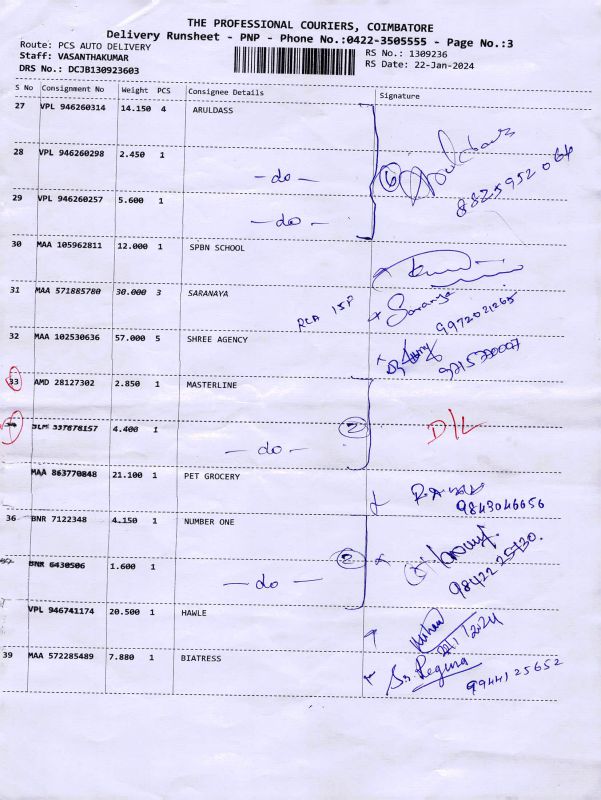 THE PROFESSIONAL COURIERS, COIMBATORE
Delivery Runsheet - PNP - Phone No.:0422-3505555 - Page No.:3
Route: PCS AUTO DELIVERY RS No.: 1309236
Staff: VASANTHAKUMAR RS Date: 22-Jan-2024
DRS No.: DCJB130923603
S No Consignment No Weight PCS Consignee Details Signature
27 VPL 946260314 14.150 4 ARULDASS
28 VPL 946260298 2.450 1
- do - 6
8825952064
29 VPL 946260257 5.600 1
- do -
30 MAA 105962811 12.000 1 SPBN SCHOOL
31 MAA 571885780 30.000 3 SARANAYA
Saranya
9972021265
32 MAA 102530636 57.000 5 SHREE AGENCY
33 AMD 28127302 2.850 1 MASTERLINE
4.400 1 2 D/L
- do -
MAA 863770848 21.100 1 PET GROCERY
9843046656
36 BNR 7122348 4.150 1 NUMBER ONE
BNR 6430506 1.600 1 2
98422 25430.
- do -
VPL 946741174 20.500 1 HAWLE
39 MAA 572285489 7.880 1 BIATRESS
Sr. Regina
9944125652